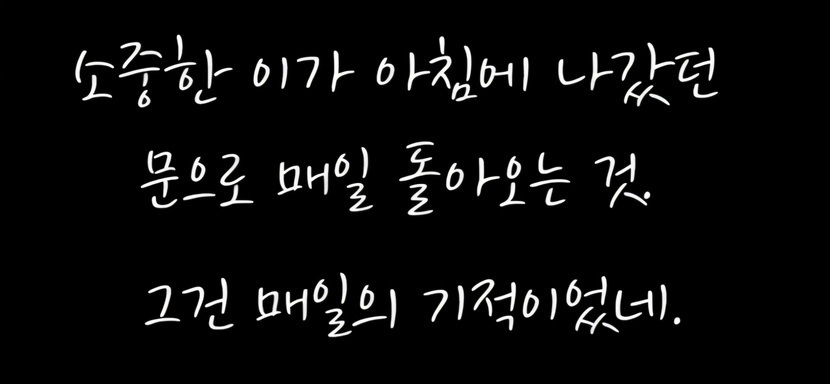 소중한 이가 아침에 나갔던
문으로 매일 돌아오는 것.
그건 매일의 기적이었네.